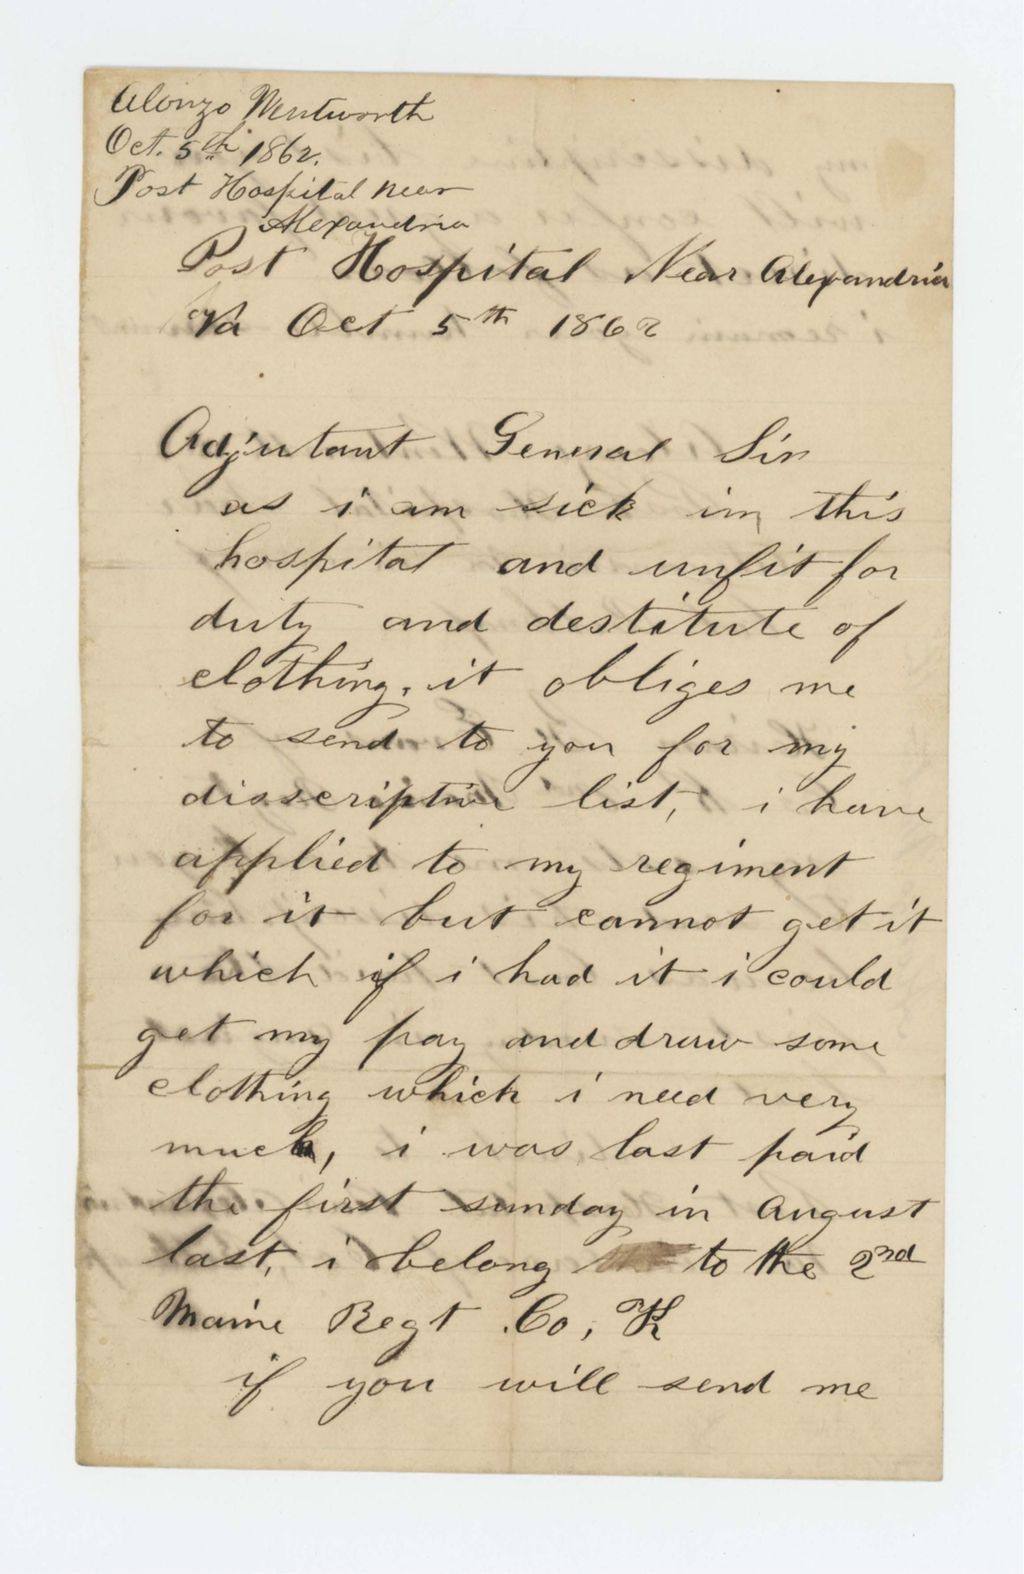 Alonzo Wentworth
Oct. 5th 1862.
Post Hospital near
Alexandria
Post Hospital Near Alexandria
Va Oct 5th 1862
Adjutant General Sir
as i am sick in this
hospital and unfit for
duty and destitute of
clothing, it obliges me
to send to you for my
disscriptive list, i have
applied to my regiment
for it but cannot get it
which if i had it i could
get my pay and draw some
clothing which i need very
much, i was last paid
the first sunday in August
last, i belong to the 2nd
Maine Regt Co, K
if you will send me